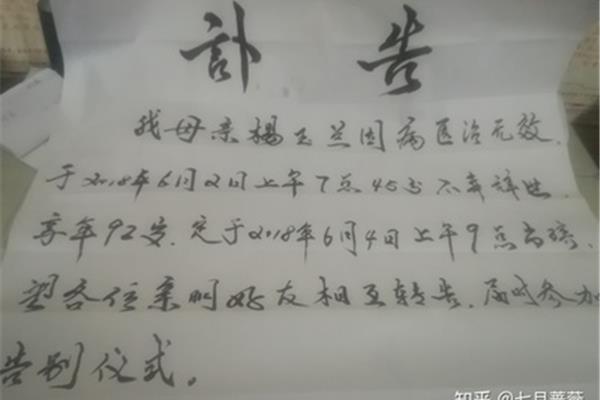 讣告
我母亲杨玉兰因病医治无效,
于2018年6月2日上午7点45分不幸辞世,
享年92岁.定于2018年6月4日上午9点出殡.
望各位亲朋好友相互转告.届时参加
告别仪式。
知乎 @七月蔷薇